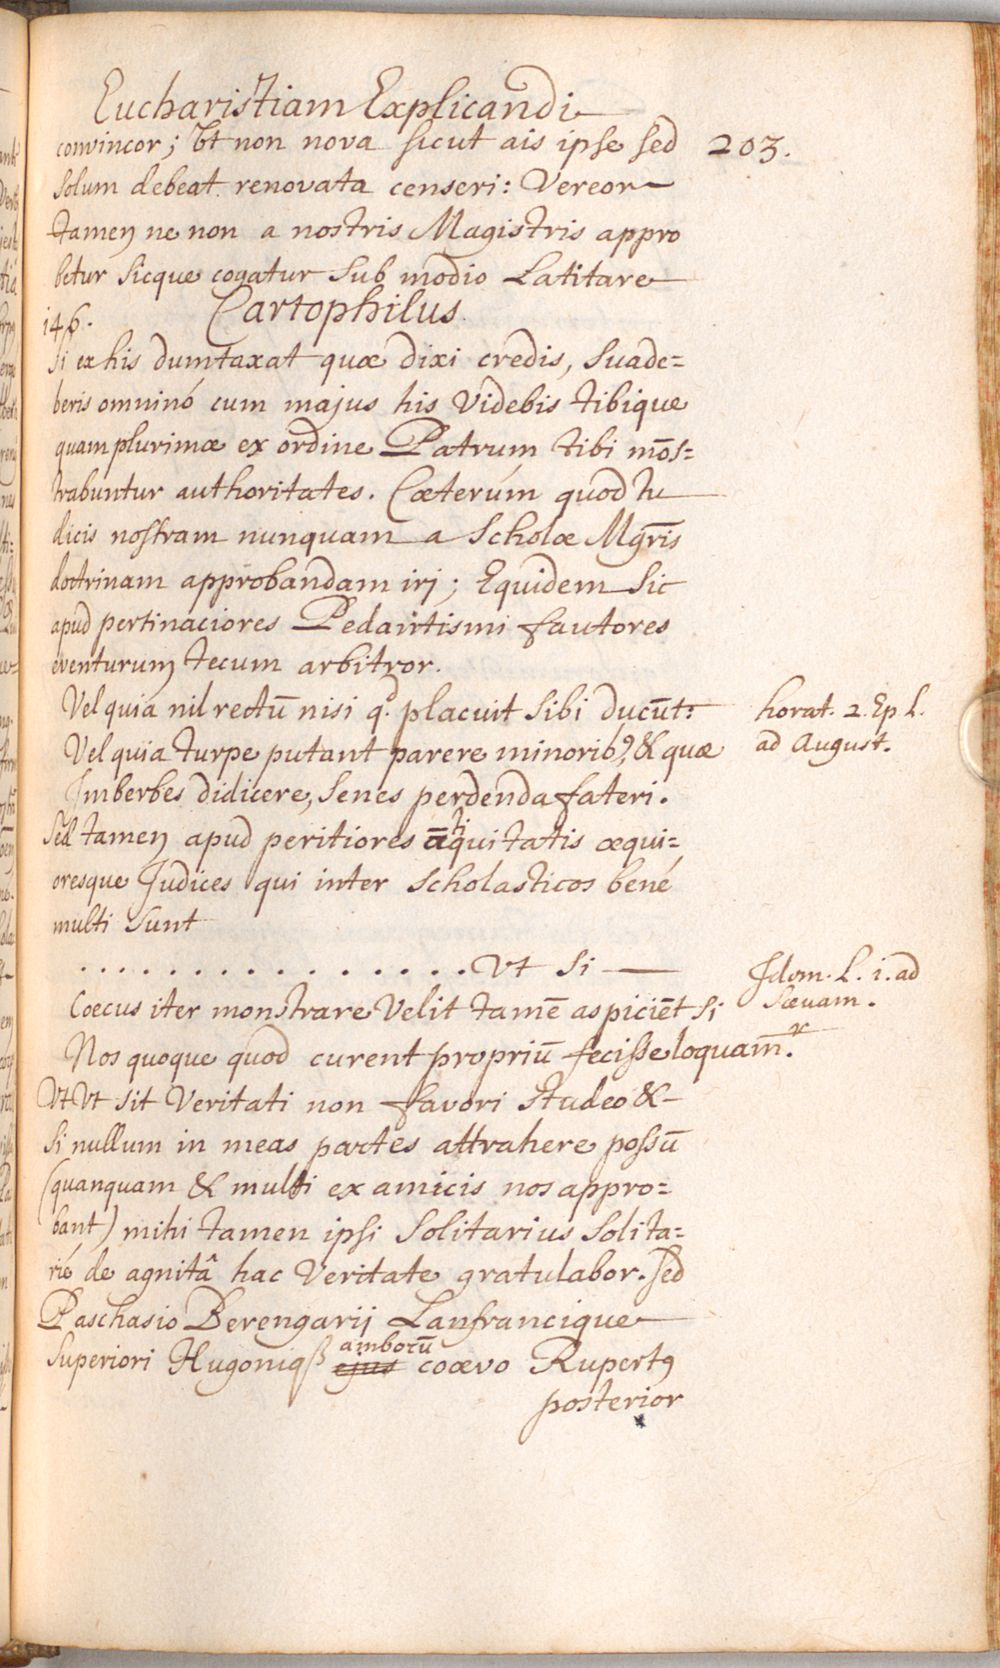 Eucharistiam Explicandi
convincor; Ut non nova sicut ais ipse sed 203.
solum debeat renovata censeri: Vereor
tamen ne non a nostris Magistris appro
betur sicque cogatur sub modio Latitare
146. Cartophilus.
Si ex his dumtaxat quæ dixi credis, suade=
beris omninó cum majus his Videbis tibique
quam plurimæ ex ordine Patrum tibi mōs=
trabuntur authoritates. Cæterúm quod tu
dicis nostram nunquam a Scholæ Mgris
doctrinam approbandam irj; Equidem sic
apud pertinaciores Pedantismi fautores
eventurum tecum arbitror.
Vel quia nil rectū nisi qd. placuit sibi ducūt: horat. 2. Ep L.
Vel quia turpe putant parere minorib9, & quæ ad August.
Imberbes didicere, senes perdenda fateri.
Sed tamen apud peritiores ātiquitatis æqui=
oresque Judices qui inter Scholasticos bené
multi sunt
. . . . . . . . . . . . . . . . Ut si Idem. L. i. ad
Coecus iter monstrare Velit tamē aspiciēt si Scævam.
Nos quoque quod curent propriū fecisse loquam̄r.
Ut Ut sit Veritati non favori studeo &
si nullum in meas partes attrahere possū
(quanquam & multi ex amicis nos appro=
bant) mihi tamen ipsi solitarius solita=
rié de agnitâ hac Veritate gratulabor. sed
Paschasio Berengarij Lanfrancique
superiori Hugoniqß ejus amborū coævo Rupertq
posterior